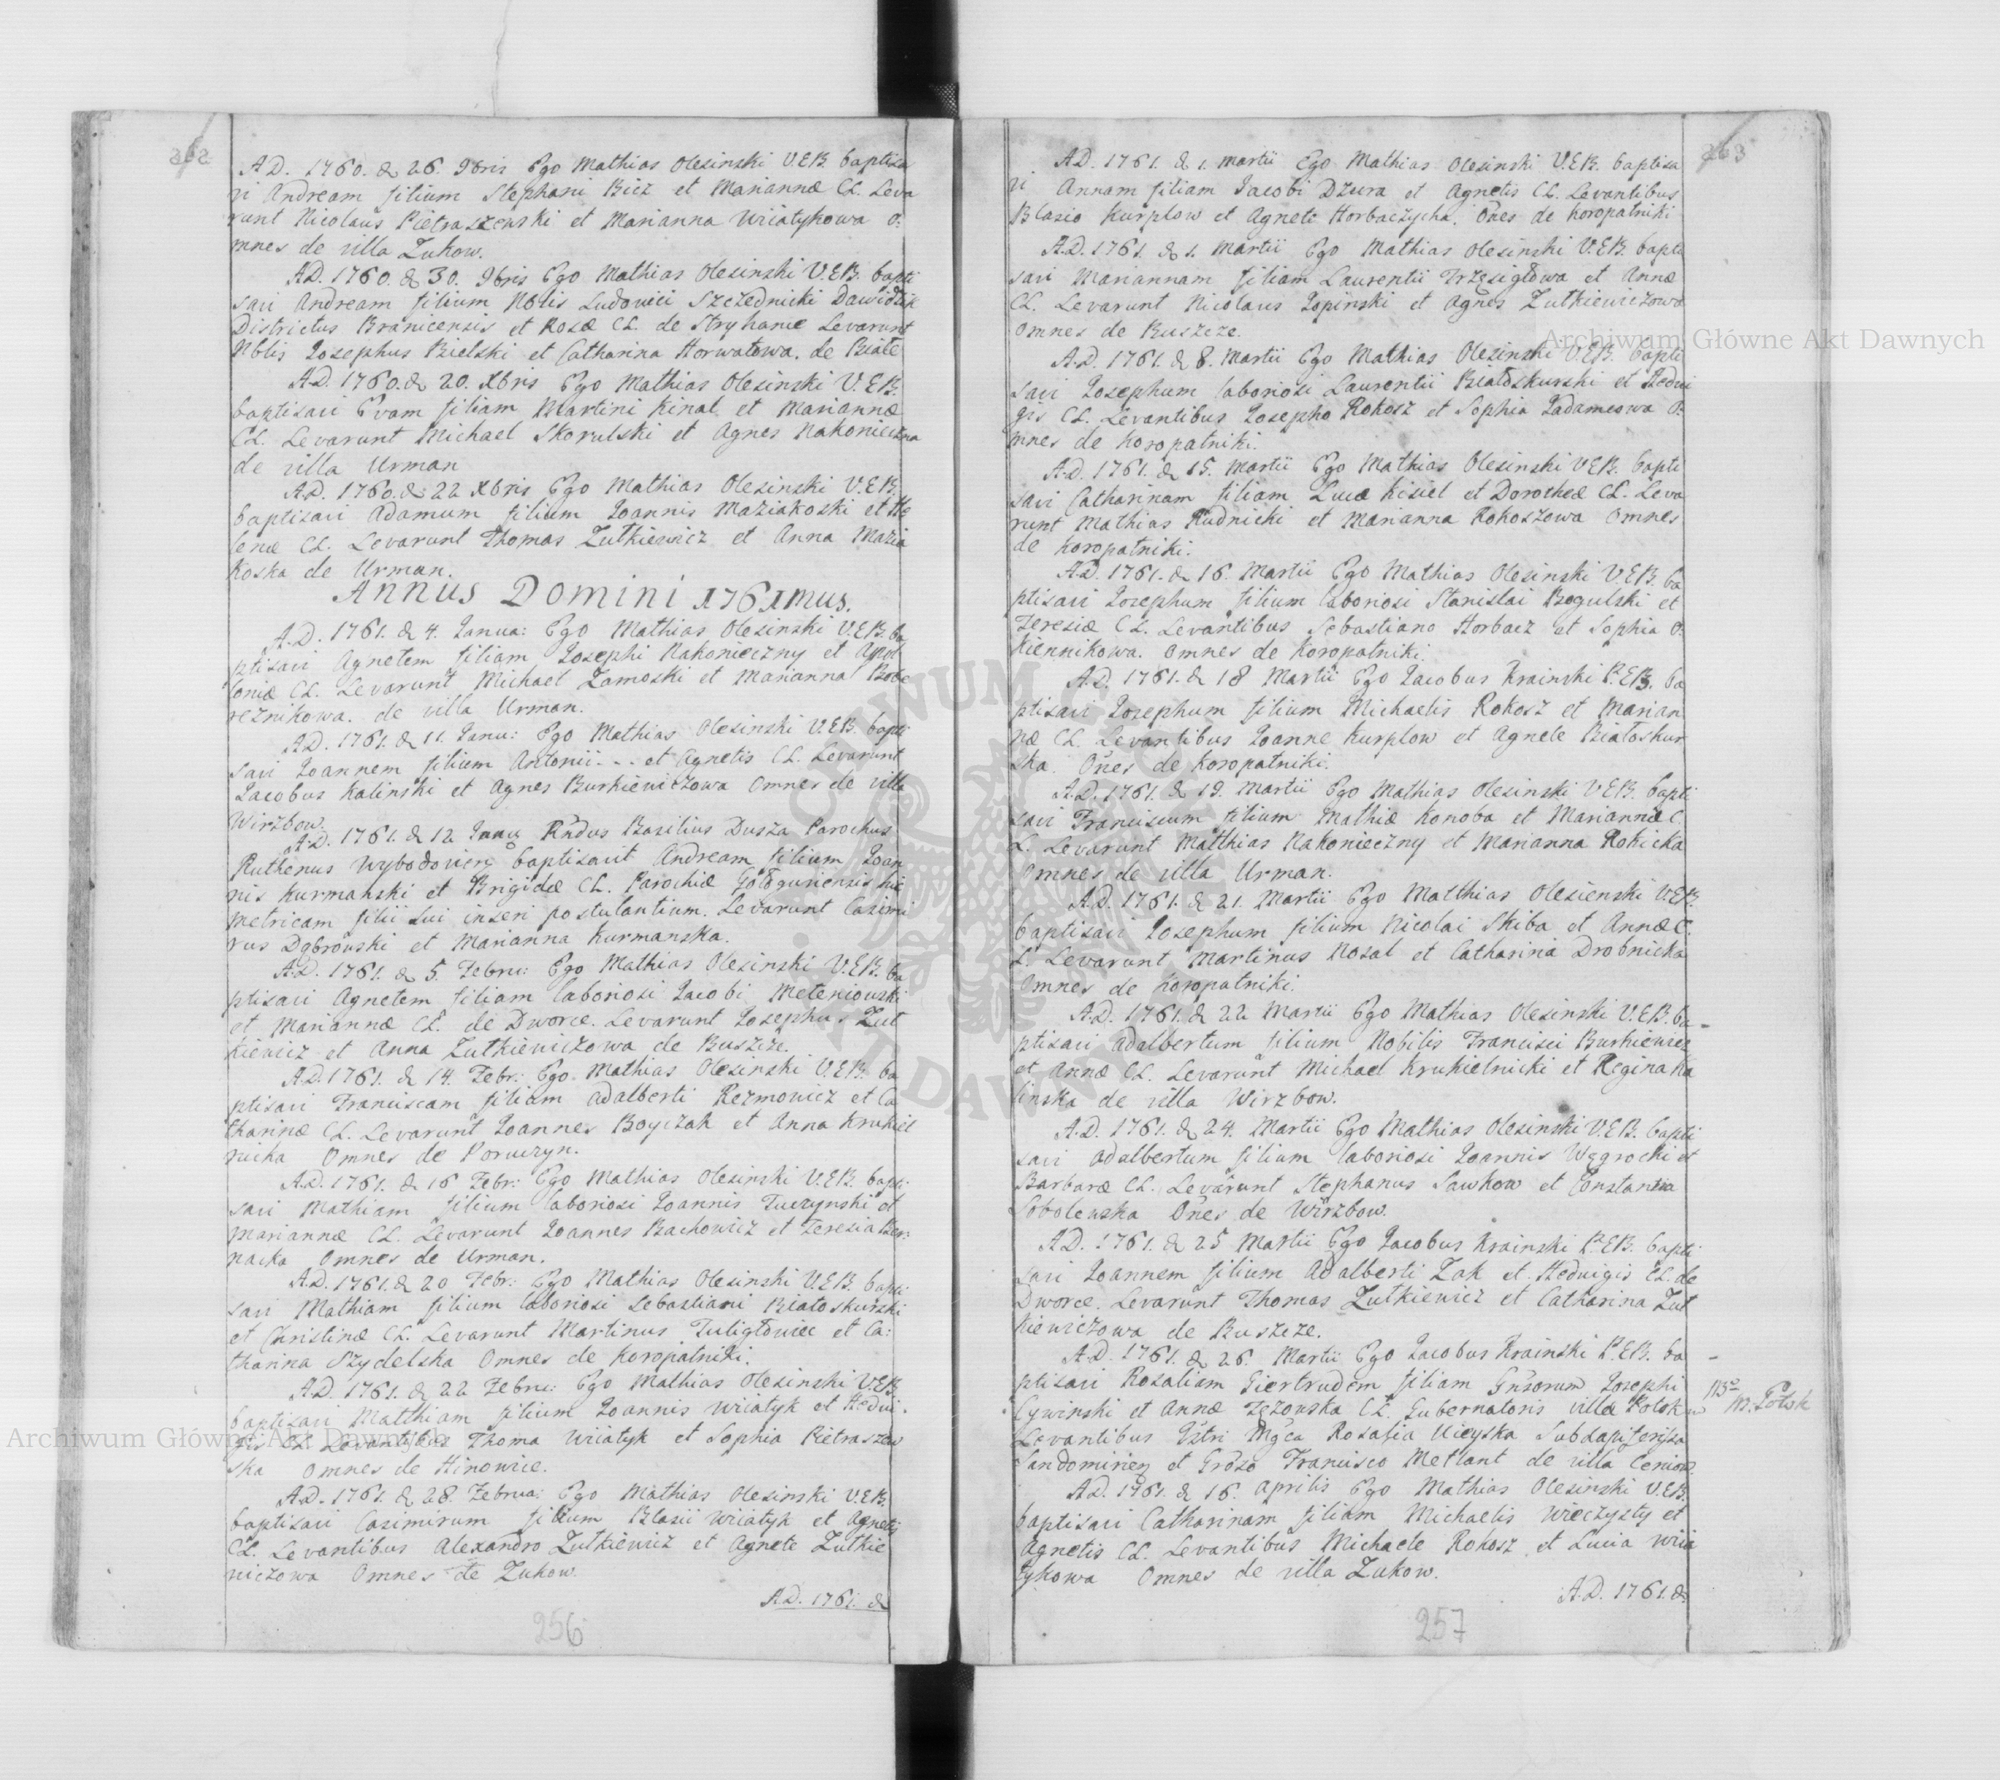 262
A.D. 1760. d. 26. 9bris Ego Mathias Olesinski V.E.B. baptisa
vi Andream filium Stephani Bicz et Mariannæ CL. Leva
runt Nicolaus Pietraszewski et Marianna Wiiatykowa o:
mnes de villa Zukow.
A.D. 1760. d. 30. 9bris Ego Mathias Olesinski V.E.B. bapti
savi Andream filium Nblis Ludovici Szczednicki
Districtus Branicensis et Rosæ CL. de Stryhanie Levarunt
Nblis Josephus Bielski et Catharina Horwatowa. de Białe
A.D. 1760. d. 20. Xbris Ego Mathias Olesinski V.E.B.
baptisavi Evam filiam Martini Kinal et Mariannæ
CL. Levarunt Michael Skorulski et Agnes Nakonieczna
de villa Urman
A.D. 1760. d. 22 Xbris Ego Mathias Olesinski V.E.B.
baptisavi Adamum filium Joannis Maziakoski et He
lenæ CL. Levarunt Thomas Zutkiewicz et Anna Mazia
koska de Urman.
Annus Domini 1761mus.
A.D. 1761. d. 4. Janua: Ego Mathias Olesinski V.E.B. ba
ptisavi Agnetem filiam Josephi Nakonieczny et Apol
loniæ CL. Levarunt Michael Zamoski et Marianna Bobe
reznikowa. de villa Urman.
A.D. 1761. d. 11. Janu: Ego Mathias Olesinski V.E.B. bapti
savi Joannem filium Antonii - - - et Agnetis CL. Levarunt
Jacobus Kalinski et Agnes Burkiewiczowa Omnes de villa
Wirzbow.
A.D. 1761. d. 12 Rndus Basilius Dusza Parochus
Ruthenus baptisavit Andream filium Joan
nis Kurmanski et Brigidæ CL. Parochiæ Gołogoriensis hic
metricam filii sui inseri postulantium. Levarunt Casimi
rus Dąbrowski et Marianna Kurmanska.
A.D. 1761. d. 5. Febru: Ego Mathias Olesinski V.E.B. ba
ptisavi Agnetem filiam laboriosi Jacobi Meteniowski
et Mariannæ CL. de Dworce. Levarunt Josephus Zut
kiewicz et Anna Zutkiewiczowa de Buszcze.
A.D. 1761. d. 14. Febr: Ego. Mathias Olesinski V.E.B. ba
ptisavi Franciscam filiam Adalberti Rezmowicz et Ca
tharinæ CL. Levarunt Joannes Boyczak et Anna Krukiel
nicka Omnes de Poruczyn.
A.D. 1761. d. 16 Febr: Ego Mathias Olesinski V.E.B. bapti
savi Mathiam filium laboriosi Joannis Tuczynski et
Mariannæ CL. Levarunt Joannes Bachowicz et Teresia Ber:
nacka Omnes de Urman.
A.D. 1761. d. 20 Febr: Ego Mathias Olesinski V.E.B. bapti
savi Mathiam filium laboriosi Sebastiani Białoskurski
et Christinæ CL. Levarunt Martinus Tuligłowiec et Ca:
tharina Szydelska Omnes de Koropatniki.
A.D. 1761. d. 22 Febru: Ego Mathias Olesinski V.E.B.
baptisavi Matthiam filium Joannis Wiiatyk et Hedvi
gis CL. Levantibus Thoma Wiiatyk et Sophia Pietraszew
ska Omnes de Hinowice.
A.D. 1761. d. 28. Februa: Ego Mathias Olesinski V.E.B.
baptisavi Casimirum filium Blasii Wiiatyk et Agnetis
CL. Levantibus Alexandro Zutkiewicz et Agnete Zutkie
wiczowa Omnes de Zukow.
A.D. 1761. d.
256
263
A.D. 1761. d. 1. Martii Ego Mathias Olesinski V.E.B. baptisa
vi Annam filiam Jacobi Dziura et Agnetis CL. Levantibus
Blasio Kurplow et Agnete Horbaczycha. Oñes de Koropatniki
A.D. 1761. d. 1. Martii Ego Mathias Olesinski V.E.B. bapti
savi Mariannam filiam Laurentii Trzęsigłowa et Annæ
CL. Levarunt Nicolaus Łopinski et Agnes Zutkiewiczowa
Omnes de Buszcze.
A.D. 1761. d. 8. Martii Ego Mathias Olesinski V.E.B. bapti
savi Josephum laboriosi Laurentii Białoskurski et Hedvi
gis CL. Levantibus Josepho Rokosz et Sophia Jadamcowa o:
mnes de Koropatniki.
A.D. 1761. d. 15. Martii Ego Mathias Olesinski V.E.B. bapti
savi Catharinam filiam Lucæ Kisiel et Dorotheæ CL. Leva
runt Mathias Rudnicki et Marianna Rokoszowa Omnes
de Koropatniki.
A.D. 1761. d. 16. Martii Ego Mathias Olesinski V.E.B. ba
ptisavi Josephum filium laboriosi Stanislai Bogulski et
Teresiæ CL. Levantibus Sebastiano Horbacz et Sophia O:
kiennikowa. Omnes de Koropatniki.
A.D. 1761. d. 18 Martii Ego Jacobus Krainski P.E.B. ba
ptisavi Josephum filium Michaelis Rokosz et Marian
næ CL. Levantibus Joanne Kurplow et Agnete Białoskur
ska. Oñes de Koropatniki.
A.D. 1761. d. 19. Martii Ego Mathias Olesinski V.E.B. bapti
savi Franciscum filium Mathiæ Konoba et Mariannæ C.
L. Levarunt Matthias Nakonieczny et Marianna Rokicka
Omnes de villa Urman.
A.D. 1761. d. 21. Martii Ego Matthias Olesienski V.E.B.
baptisavi Josephum filium Nicolai Skiba et Annæ C.
L. Levarunt Martinus Nosal et Catharina Drobnicka
Omnes de Koropatniki.
A.D. 1761. d. 22 Martii Ego Mathias Olesinski V.E.B. ba-
ptisavi Adalbertum filium Nobilis Francisci Burkiewicz
et Annæ CL. Levarunt Michael Krukielnicki et Regina Ka
linska de villa Wirzbow.
A.D. 1761. d. 24. Martii Ego Mathias Olesinski V.E.B. bapti
savi Adalbertum filium laboriosi Joannis Węgrocki et
Barbaræ CL. Levarunt Stephanus Sawkow et Constantia
Sobolewska Oñes de Wirzbow.
A.D. 1761. d. 25 Martii Ego Jacobus Krainski P.E.B. bapti
savi Joannem filium Adalberti Zak et Hedvigis CL. de
Dworce. Levarunt Thomas Zutkiewicz et Catharina Zut
kiewiczowa de Buszcze.
A.D. 1761. d. 26. Martii Ego Jacobus Krainski P.E.B. ba
ptisavi Rosaliam Giertrudem filiam Gnsorum Josephi
Cywinski et Annæ CL. Gubernatoris villæ
Levantibus Rosalia
Francisco de villa
A.D. 1761. d. 16. Aprilis Ego Mathias Olesinski V.E.B.
baptisavi Catharinam filiam Michaelis Wieczysty et
Agnetis CL. Levantibus Michaele Rokosz et Lucia Wiia
tykowa Omnes de villa Zukow.
A.D. 1761. d.
257
Archiwum Główne Akt Dawnych
Archiwum Główne Akt Dawnych